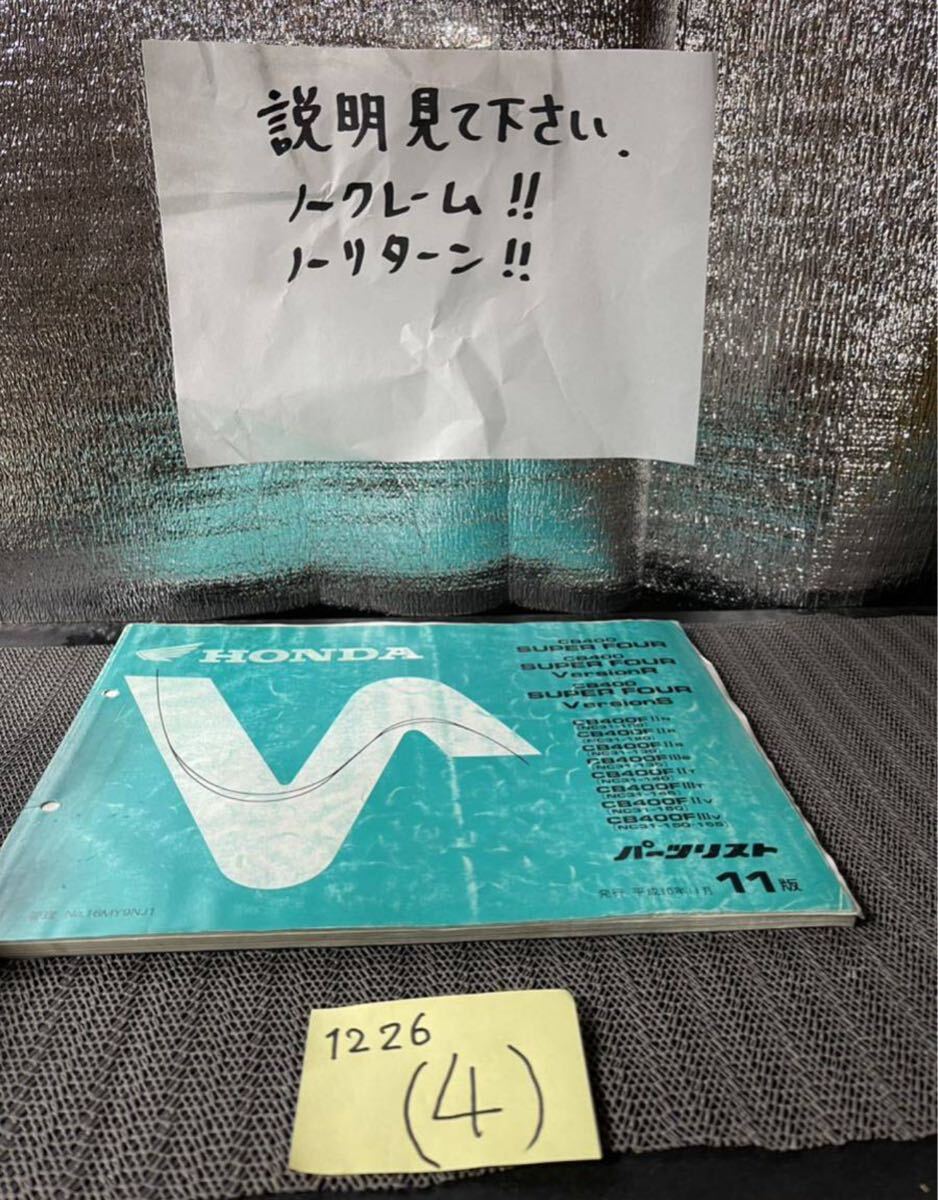 説明見て下さい.
ノークレーム!!
ノーリターン!!
HONDA
CB400
SUPER FOUR
CB400
SUPER FOUR
VersionR
CB400
SUPER FOUR
VersionS
CB400FIIN
CB400FIIR
CB400FIIS
CB400FIIIS
(NC31-135)
CB400FIIT
(NC31-140)
CB400FIIIT
(NC31-145)
CB400FIIV
(NC31-150)
CB400FIIIV
(NC31-150·155)
パーツリスト
発行 平成10年11月 11版
No.16MY9NJ1
1226
(4)